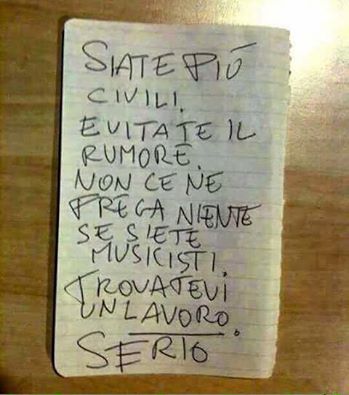 SIATE PIÚ
CIVILI.
EVITATE IL
RUMORE.
NON CE NE
FREGA NIENTE
SE SIETE
MUSICISTI.
TROVATEVI
UN LAVORO.
SERIO